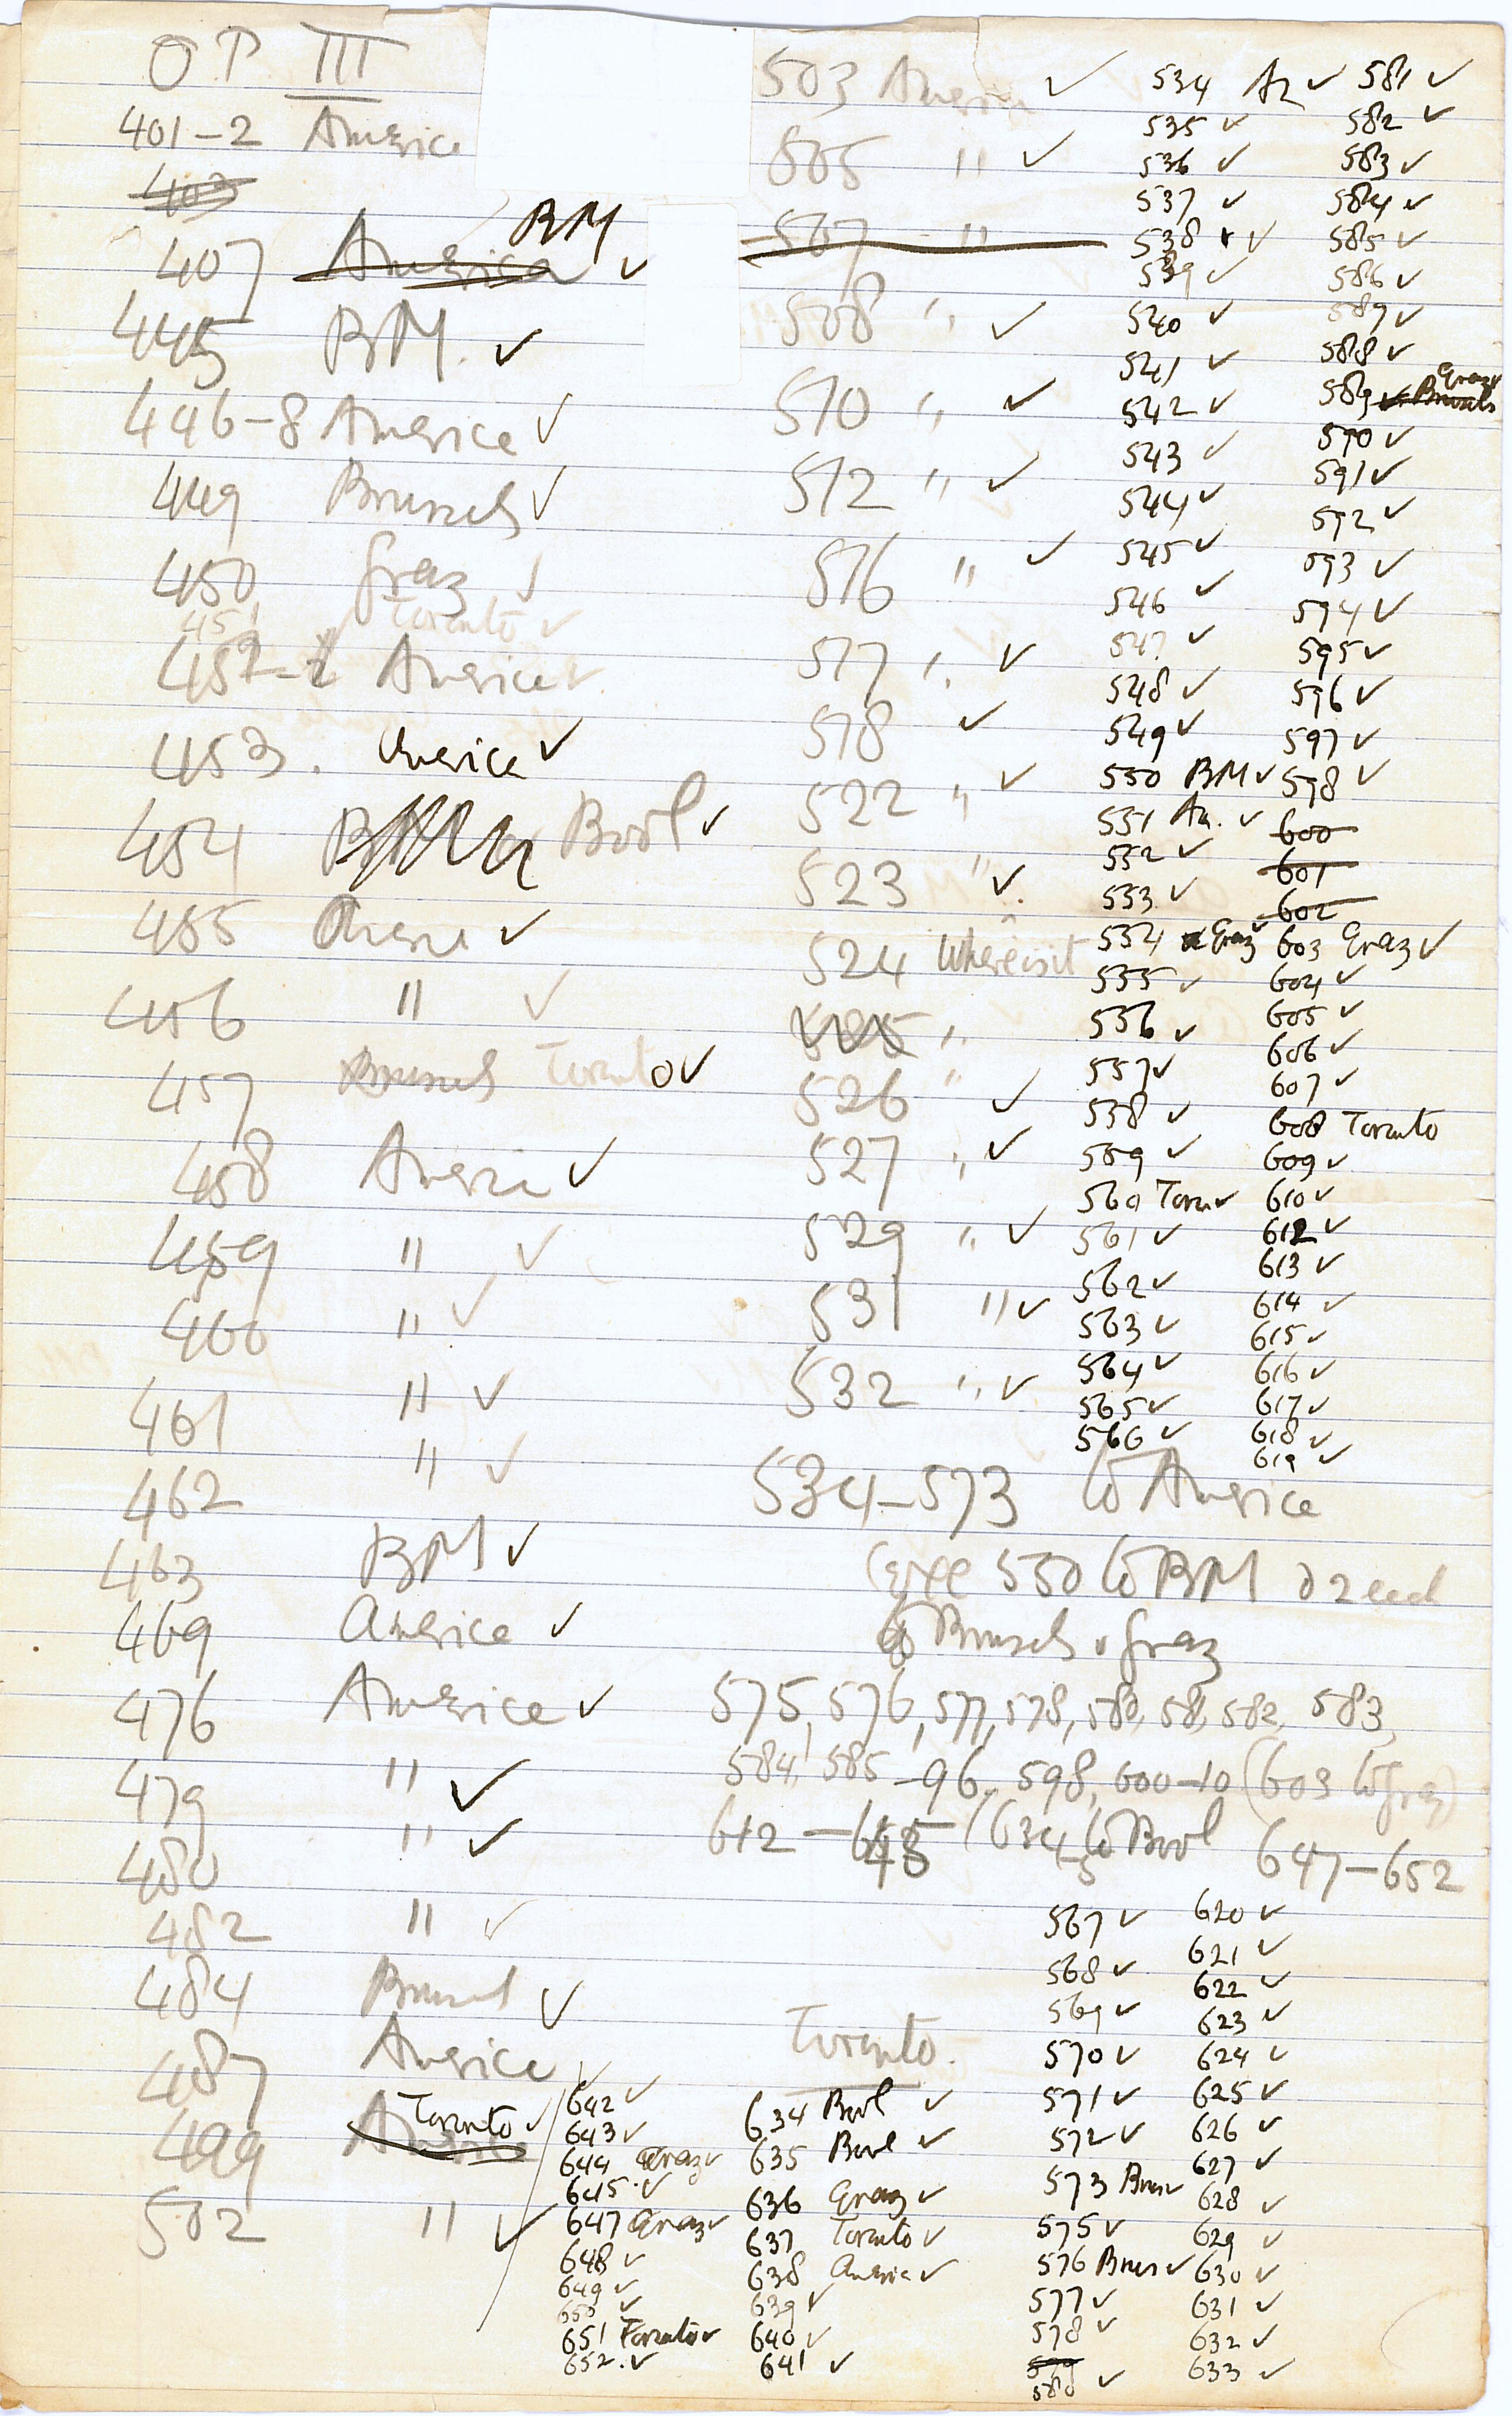 OP III
401-2 America
403
407 America BM ✓
445 BM. ✓
446-8 America ✓
449 Brussels ✓
450 Graz ✓
451 Toronto ✓
452 America ✓
453. America ✓
454 Bool ✓
455 America ✓
456 " ✓
457 Brussels Toronto ✓
458 America ✓
459 " ✓
460 " ✓
461 " ✓
462 " ✓
463 BM ✓
469 America ✓
476 America ✓
479 " ✓
480 " ✓
482 " ✓
484 Brussel ✓
487 America ✓
499 America Toronto ✓
502 " ✓
503 America ✓
505 " ✓
507 "
508 " ✓
510 " ✓
512 " ✓
516 " ✓
517 " ✓
518 ✓
522 " ✓
523 " ✓
524 Where is it
525 "
526 " ✓
527 " ✓
529 " ✓
531 " ✓
532 " ✓
534 Am ✓
535 ✓
536 ✓
537 ✓
538 ✓ ✓
539 ✓
540 ✓
541 ✓
542 ✓
543 ✓
544 ✓
545 ✓
546 ✓
547 ✓
548 ✓
549 ✓
550 BM ✓
551 Am. ✓
552 ✓
553 ✓
554 Graz ✓
555 ✓
556 ✓
557 ✓
558 ✓
559 ✓
560 Toron ✓
561 ✓
562 ✓
563 ✓
564 ✓
565 ✓
566 ✓
581 ✓
582 ✓
583 ✓
584 ✓
585 ✓
586 ✓
587 ✓
588 ✓
589 ✓ Brussels Graz
590 ✓
591 ✓
592 ✓
593 ✓
594 ✓
595 ✓
596 ✓
597 ✓
598 ✓
600
601
602
603 Graz ✓
604 ✓
605 ✓
606 ✓
607 ✓
608 Toronto
609 ✓
610 ✓
612 ✓
613 ✓
614 ✓
615 ✓
616 ✓
617 ✓
618 ✓
619 ✓
534-573 to America
550 to BM 2 each
to Brussels & Graz
575, 576, 577, 578, 580, 581, 582, 583,
584, 585-96, 598, 600-10 (603 to Graz)
612-645 (634-5 to Bool 647-652
Toronto.
642 ✓
643 ✓
644 Graz ✓
645 ✓
647 Graz ✓
648 ✓
649 ✓
650 ✓
651 Toronto ✓
652. ✓
634 Bool ✓
635 Bool ✓
636 Graz ✓
637 Toronto ✓
638 America ✓
639 ✓
640 ✓
641 ✓
567 ✓
568 ✓
569 ✓
570 ✓
571 ✓
572 ✓
573 Brus ✓
575 ✓
576 Brus ✓
577 ✓
578 ✓
579
580 ✓
620 ✓
621 ✓
622 ✓
623 ✓
624 ✓
625 ✓
626 ✓
627 ✓
628 ✓
629 ✓
630 ✓
631 ✓
632 ✓
633 ✓